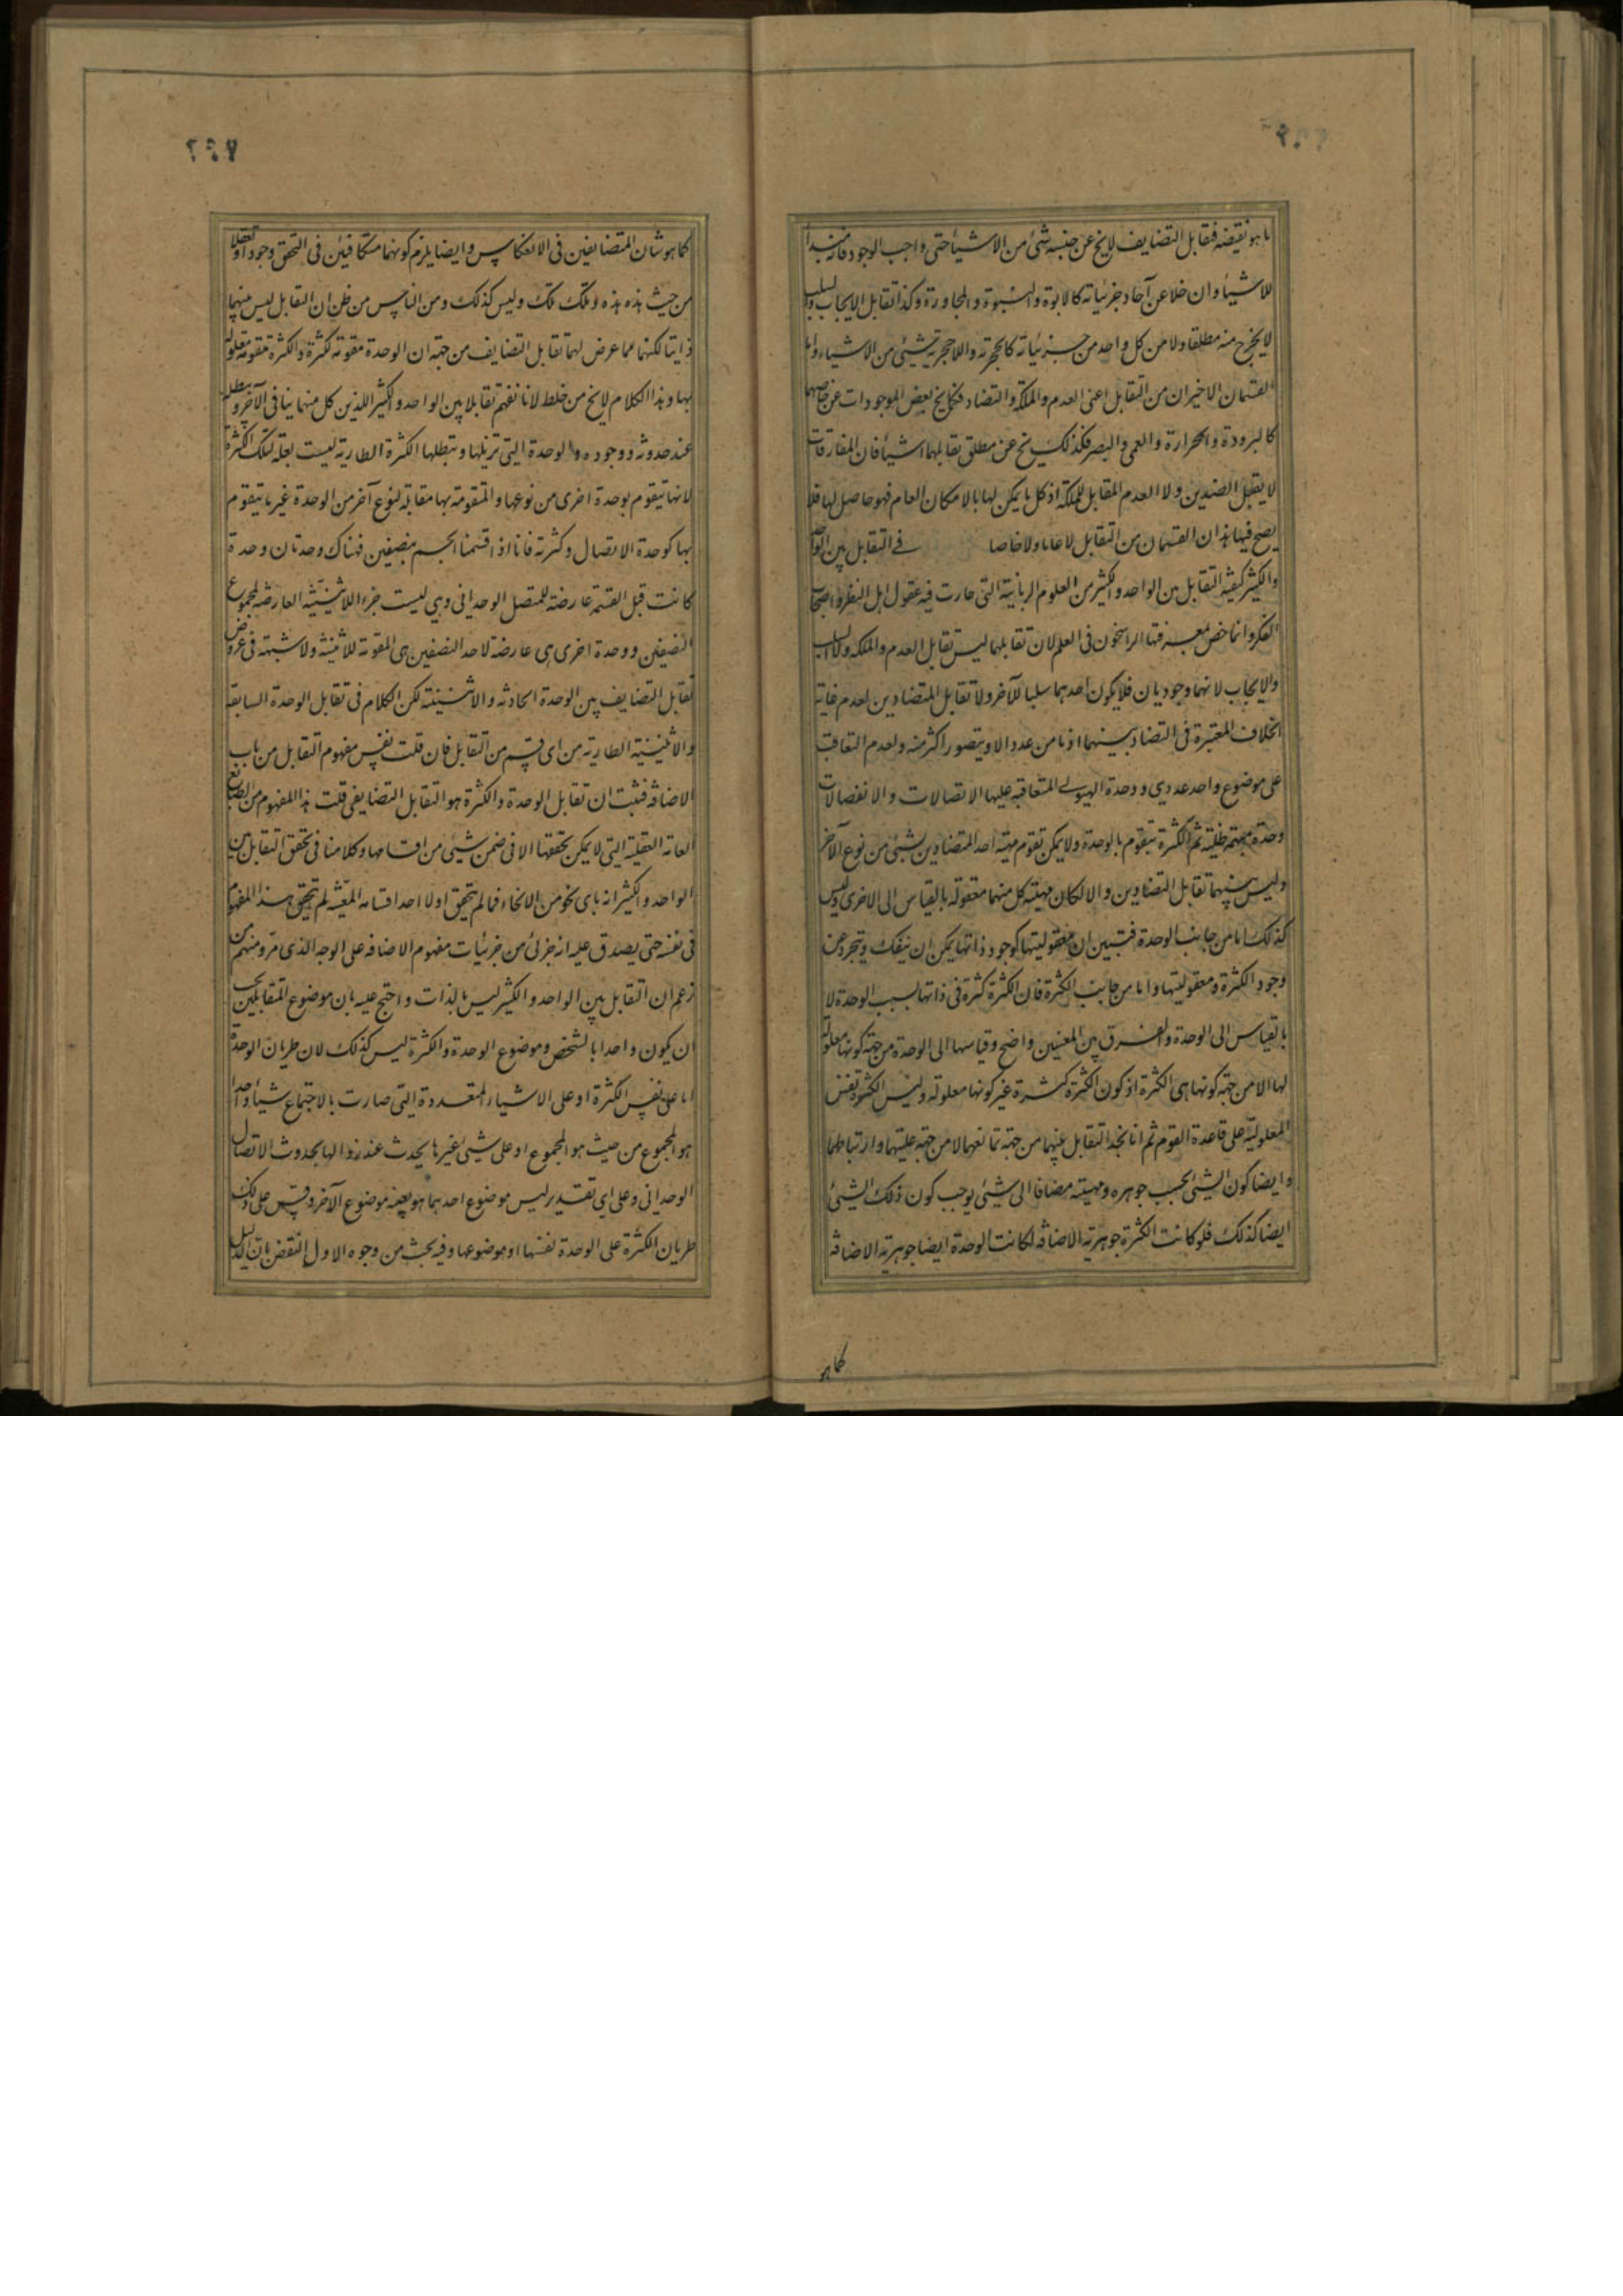 ما هو نقیضه فتقابل التضایف لا یخ عن جنسه شئ من الاشیأ حتی واجب الوجود فانه مبدأ
للاشیأ وان خلا عن آحاد جزئیاته کالابوة والبنوة والمجاورة وکذا تقابل الایجاب والسلب
لا یخرج منه مطلقا ولا من کل واحد من جزئیاته کالحجریة واللاحجریة شیئ من الاشیاء واما
القسمان الاخیران من التقابل اعنی العدم والملکة والتضاد فکما یخ بعض الموجودات عن خاصهما
کالبرودة والحرارة والعمی والبصر فکذلک یخ عن مطلق تقابلهما اشیأ فان المفارقات
لا یقبل الضدین ولا العدم المقابل للملکة اذ کل ما یمکن لها بالامکان العام فهو حاصل لها فلا
یصح فیها هذان القسمان من التقابل لا عاما ولا خاصا فی التقابل بین الواحد
والکثیر کیفیة التقابل بین الواحد والکثیر من العلوم الربانیة التی حارت فیه عقول اهل النظر واصحاب
الفکر وانما خص بمعرفتها الراسخون فی العلم لان تقابلهما لیس تقابل العدم والملکه والسلب
والایجاب لانهما وجودیان فلا یکون احدهما سلبا للآخر ولا تقابل المتضادین لعدم غایة
الخلاف المعتبرة فی التضاد بینهما اذ ما من عدد الا ویتصور اکثر منه ولعدم التعاقب
علی موضوع واحد عددی ووحدة الهیولی المتعاقبه علیها الاتصالات والانفصالات
وحدة مبهمة ظلیة ثم الکثرة یتقوم بالوحدة ولا یمکن تقوم مهیة احد المتضادین بشیئ من نوع الآخر
ولیس بینهما تقابل التضادین والا لکان مهیة کل منهما معقوله بالقیاس الی الاخری ولیس
کذلک اما من جانب الوحدة فتبین ان معقولیتها کوجود ذاتها یمکن ان ینفک ویتجرد عن
وجود الکثرة ومعقولیتها واما من جانب الکثرة فان الکثرة کثرة فی ذاتها بسبب الوحدة لا
بالقیاس الی الوحدة والفرق بین المعنیین واضح وقیاسها الی الوحدة من جهة کونها معلولة
لها لا من جهة کونها هی الکثرة اذ کون الکثرة کثرة غیر کونها معلولة ولیس الکثرة نفس
المعلولیة علی قاعدة القوم ثم انا نجد التقابل بینهما من جهة تمانعهما لا من جهة علیتهما وارتباطهما
وایضا کون الشیئ بحسب جوهره ومهیته مضافا الی شیئ یوجب کون ذلک الشیئ
ایضا کذلک فلو کانت الکثرة جوهریة الاضافه لکانت الوحدة ایضا جوهریة الاضافة
کما هو
کما هو شان المتضایفین فی الانعکاس وایضا یلزم کونهما متکافیین فی التحقق وجودا وتعقلا
من حیث هذه هذه وتلک تلک ولیس کذلک ومن الناس من ظن ان التقابل لیس بینهما
ذاتیا لکنهما مما عرض لهما تقابل التضایف من جهة ان الوحدة مقومة لکثرة والکثرة متقومة معلولة
بها وهذا الکلام لا یخ من خلط لانا نفهم تقابلا بین الواحد والکثیر اللذین کل منهما ینافی الآخر ویبطله
عند حدوثه ووجوده والوحدة التی تزیلها وتبطلها الکثرة الطاریة لیست بعلة لتلک الکثرة
لانها یتقوم بوحدة اخری من نوعها والمتقومة بها مقابلة لنوع آخر من الوحدة غیر ما یتقوم
بها کوحدة الاتصال وکثرته فانا اذا قسمنا الجسم بنصفین فهناک وحدتان وحدة
کانت قبل القسمة عارضة للمتصل الوحدانی وهی لیست جزء اللاثنینیه العارضه لمجموع
النصفین ووحدة اخری هی عارضة لاحد النصفین هی المقومة للاثنینیه ولا شبهة فی عروض
تقابل التضایف بین الوحدة الحادثه والاثنینیة لکن الکلام فی تقابل الوحدة السابقة
والاثنینیة الطاریة من ای قسم من التقابل فان قلت نفس مفهوم التقابل من باب
الاضافة فثبت ان تقابل الوحدة والکثرة هو التقابل التضایفی قلت هذا المفهوم من الطبایع
العامة العقلیة التی لا یمکن تحققها الا فی ضمن شیئ من اقسامها وکلامنا فی تحقق التقابل بین
الواحد والکثیر انه بای نحو من الانحاء فما لم یتحقق اولا احد اقسامه المعینه لم یتحقق هذا المفهوم
فی نفسه حتی یصدق علیه انه جزئی من جزئیات مفهوم الاضافه علی الوجه الذی مر ومنهم من
زعم ان التقابل بین الواحد والکثیر لیس بالذات واحتج علیه بان موضوع المتقابلین یجب
ان یکون واحدا بالشخص وموضوع الوحدة والکثرة لیس کذلک لان طریان الوحدة
اما علی نفس الکثرة او علی الاشیاء المتعددة التی صارت بالاجتماع شیأ واحدا
هو المجموع من حیث هو المجموع او علی شیئ غیرها یحدث عند زوالها بحدوث الاتصال
الوحدانی وعلی ای تقدیر لیس موضوع احدهما هو بعینه موضوع الآخر وقس علی ذلک
طریان الکثرة علی الوحدة نفسها او موضوعها وفیه بحث من وجوه الاول النقض بان الدلیل